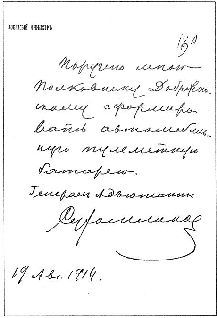 ВОЕННЫЙ МИНИСТРЪ.
Поручено мною
Полковнику Добржан-
скому сформиро-
вать автомобиль-
ную пулеметную
батарею.
Генерал Адъютант
Сухомлинов
19 Ав. 1914.